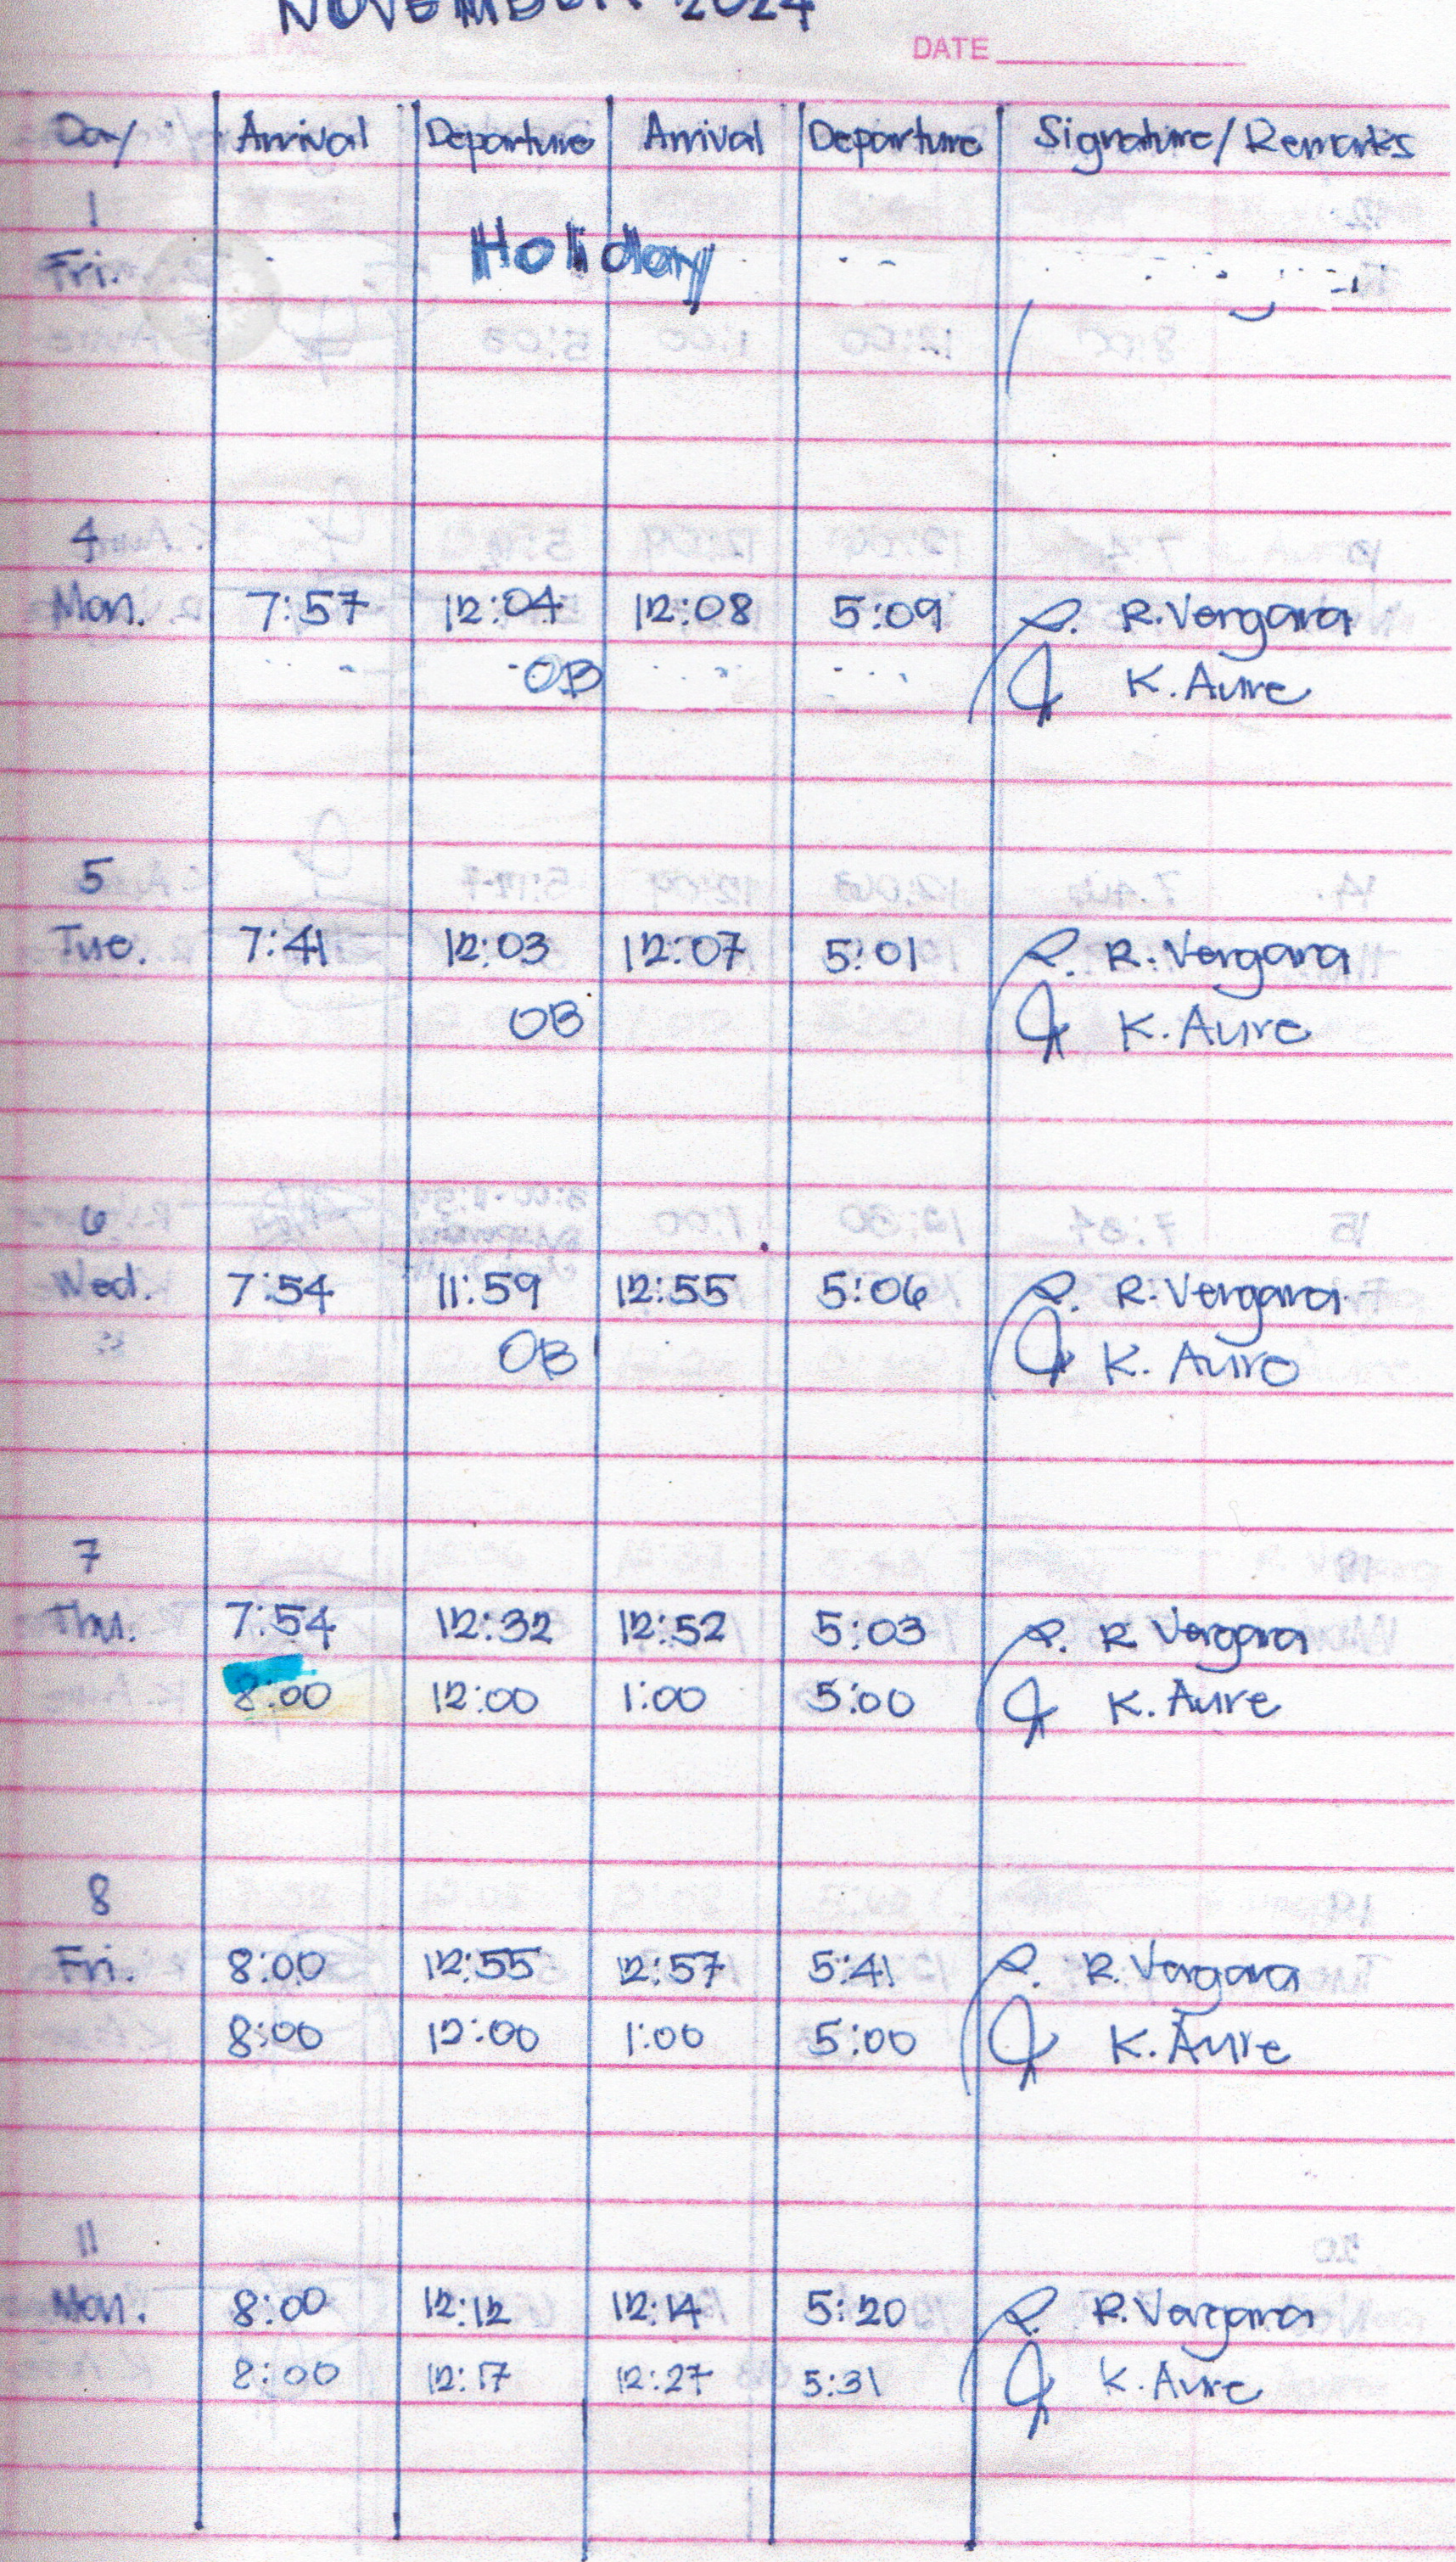 NOVEMBER 2024
DATE
Day Arrival Departure Arrival Departure Signature/Remarks
1
Fri. Holiday
4
Mon. 7:57 12:04 12:08 5:09 R. Vergara
OB K. Aure
5
Tue. 7:41 12:03 12:07 5:01 R. Vergara
OB K. Aure
6
Wed. 7:54 11:59 12:55 5:06 R. Vergara
OB K. Aure
7
Thu. 7:54 12:32 12:52 5:03 R. Vergara
8:00 12:00 1:00 5:00 K. Aure
8
Fri. 8:00 12:55 12:57 5:41 R. Vergara
8:00 12:00 1:00 5:00 K. Aure
11
Mon. 8:00 12:12 12:14 5:20 R. Vergara
8:00 12:17 12:27 5:31 K. Aure